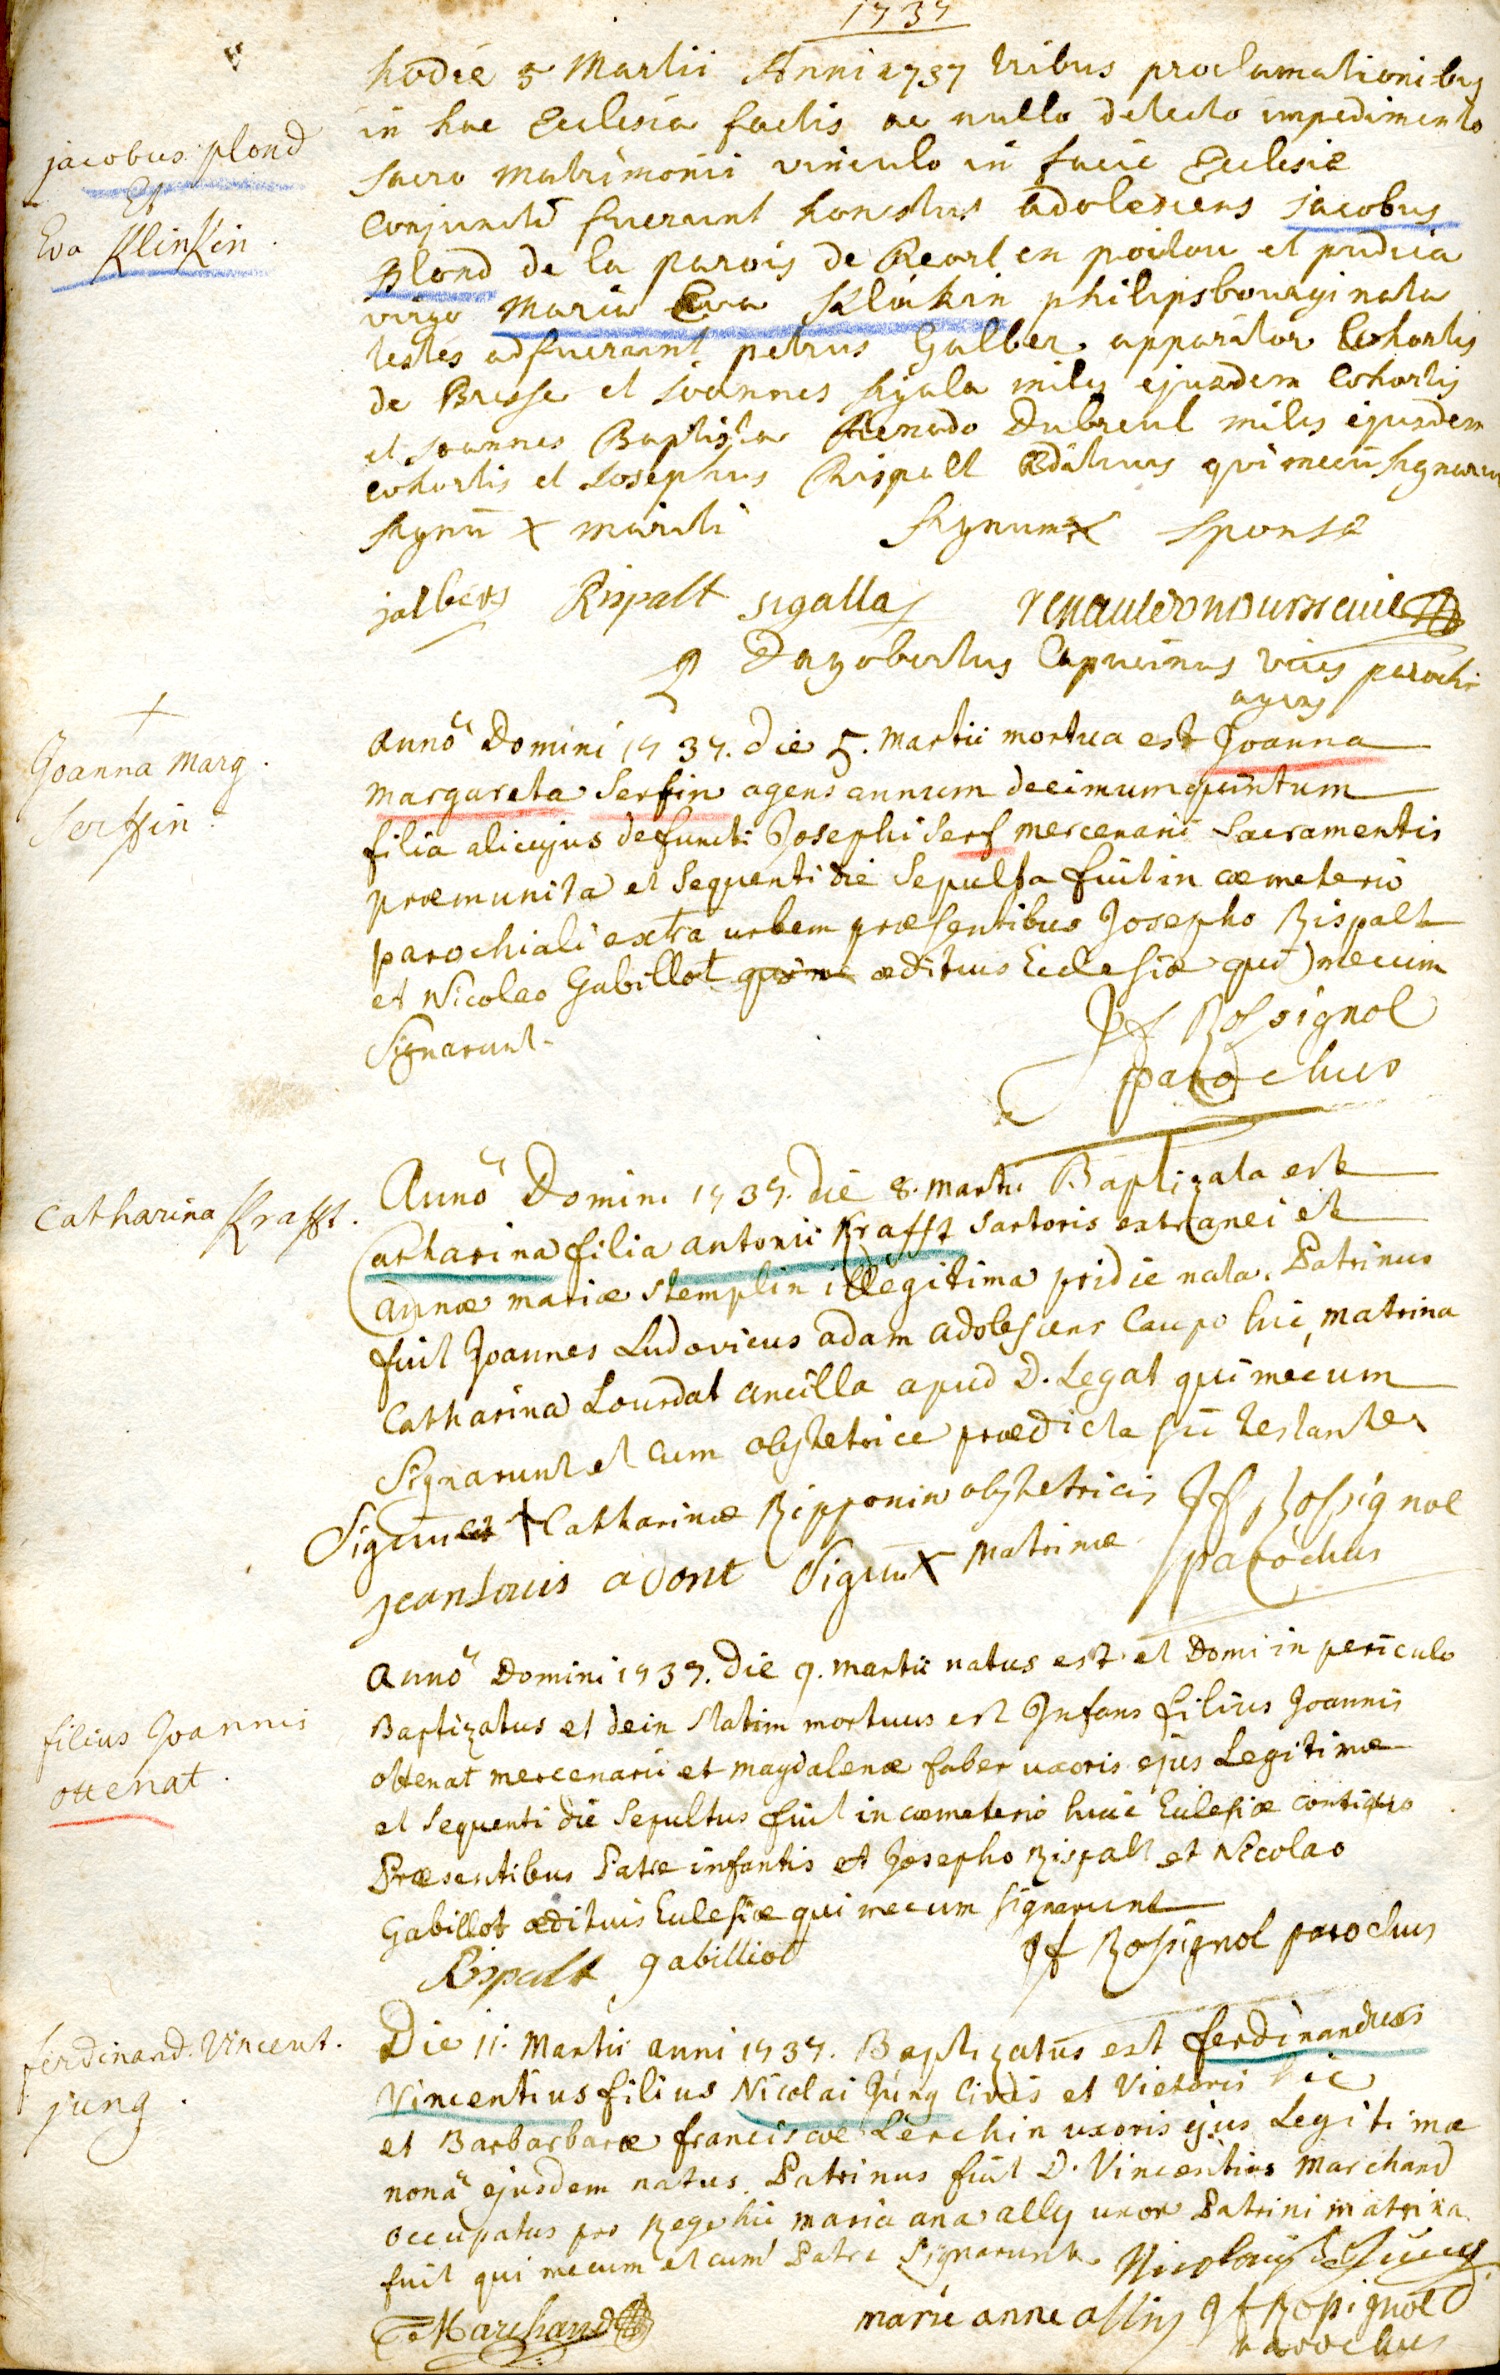 1737
hodie 5 Martii Anni 1737 tribus proclamationibus
in hac Ecclesia factis ac nullo detecto impedimento
sacro Matrimonii vinculo in facie Ecclesiæ
jacobus plond
Et
Eva Klinkin
Conjuncti fuerunt honestus adolescens jacobus
Blond de la parois de Rearl en poitou et pudica
virgo Maria Eva Klinkin philipsbourgi nata
testes adfuerunt petrus Galber apparitor Cohortis
de Bresse et Joannes Sigala miles ejusdem Cohortis
et Joannes Baptista Renado Dubreul miles ejusdem
cohortis et Josephus Rispalt Ædituus qui mecū signarun
Signū x mariti Signum x sponsæ
jalbers Rispalt sigallas
P Dagobertus Capucinus vices parochi
agens
Joanna Marg.
Serffin.
annō Domini 1737. die 5. Martii mortua est Joanna
Margareta Serfin agens annum decimumquintum
filia alicujus defuncti Josephi Serf mercenarii Sacramentis
præmunita et sequenti die Sepulta fuit in cæmeterio
parochiali extra urbem præsentibus Josepho Rispalt
et Nicolao Gabillot ædituus Ecclesiæ qui mecum
Signarunt.
Jf Rossignol
parochus
Catharina Krafft.
Annō Domini 1737. die 8. Martii Baptizata est
Catharina filia antonii Krafft Sartoris extranei et
annæ mariæ Stemplin illegitima pridie nata. Patrinus
fuit Joannes Ludovicus adam adolescens Caupo hic, matrina
Catharina Lourdat ancilla apud D. Legat qui mecum
Signarunt et cum obstetrice prædicta sic testante
Signum + Catharinæ Ripponin obstetricis Jf Rossignol
jean Louis adont Signum X Matrinæ parochus
filius Joannis
ottenat.
annō Domini 1737. die 9. Martii natus est et Domi in periculo
Baptizatus et dein statim mortuus est Infans filius Joannis
ottenat mercenarii et magdalenæ faber uxoris ejus Legitimæ
et sequenti die Sepultus fuit in cæmeterio huic Ecclesiæ contiguo
Præsentibus Patre infantis et Josepho Rispalt et Nicolao
Gabillot ædituis Ecclesiæ qui mecum signarunt
Rispalt gabilliot Jf Rossignol parochus
ferdinand. Vincent.
jung.
Die 11. Martii anni 1737. Baptizatus est ferdinandus
Vincentius filius Nicolai Jung Civis et Vietoris hic
et Barbarbaræ franciscæ Lerchin uxoris ejus Legitimæ
nonā ejusdem natus. Patrinus fuit D. Vincentius Marchand
occupatus pro Rege hic maria ana ally uxor Patrini matrina
fuit qui mecum et cum Patre signarunt. Nicolaus Jung
Marchand marie anne allin Jf Rossignol
parochus